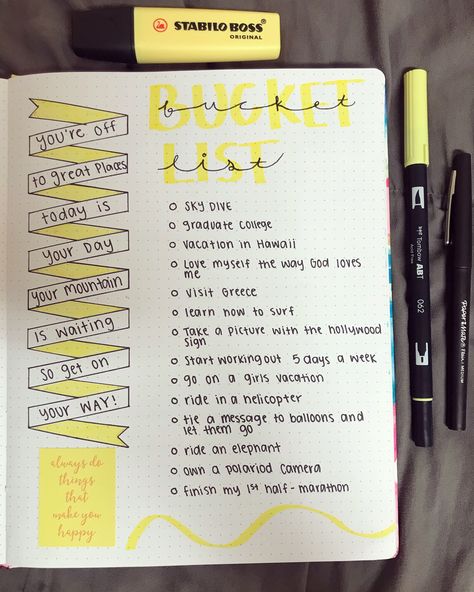 STABILO BOSS
ORIGINAL
bucket
BUCKET
list
LIST
you're off
to great Places
today is
your Day
your mountain
is waiting
so get on
your WAY!
always do
things
that
make you
happy
SKY DIVE
graduate college
vacation in Hawaii
Love myself the way God loves
me
visit Greece
learn how to surf
Take a picture with the hollywood
sign
start working out 5 days a week
go on a girls vacation
ride in a helicopter
tie a message to balloons and
let them go
ride an elephant
own a polariod camera
finish my 1st half-marathon
Tombow ABT
062